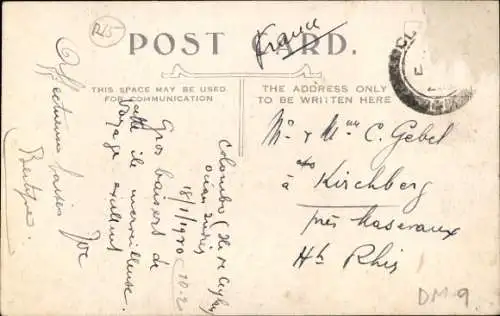 R15
France
POST CARD.
THIS SPACE MAY BE USED
FOR COMMUNICATION
THE ADDRESS ONLY
TO BE WRITTEN HERE
Colombo (Ile de Ceylan
océan indien
18/1/1920
Gros baisers de
cette ile merveilleuse.
Voyage excellent
Affectueux baisers
Mr & Mme C. Gebel
à Kirchberg
près Masevaux
Ht Rhin
DM-9